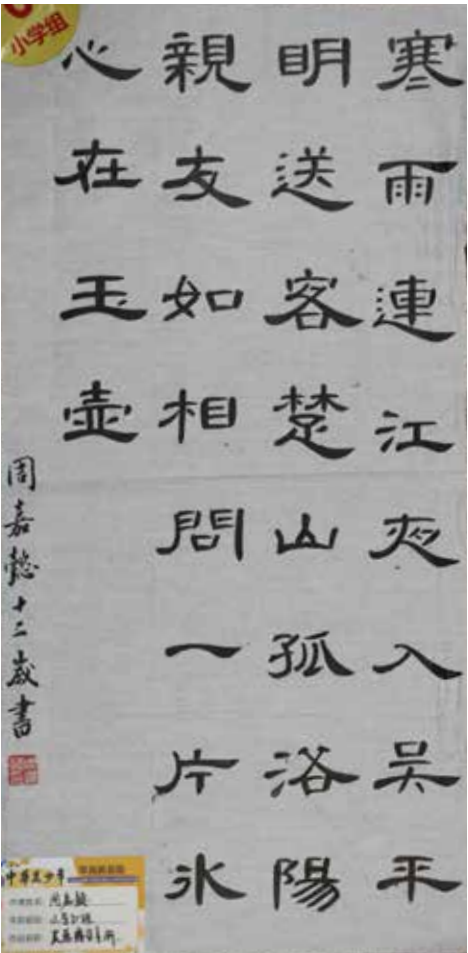 小学组
寒雨連江夜入吴平
明送客楚山孤洛陽
親友如相問一片氷
心在玉壺
周嘉懿十二歲書